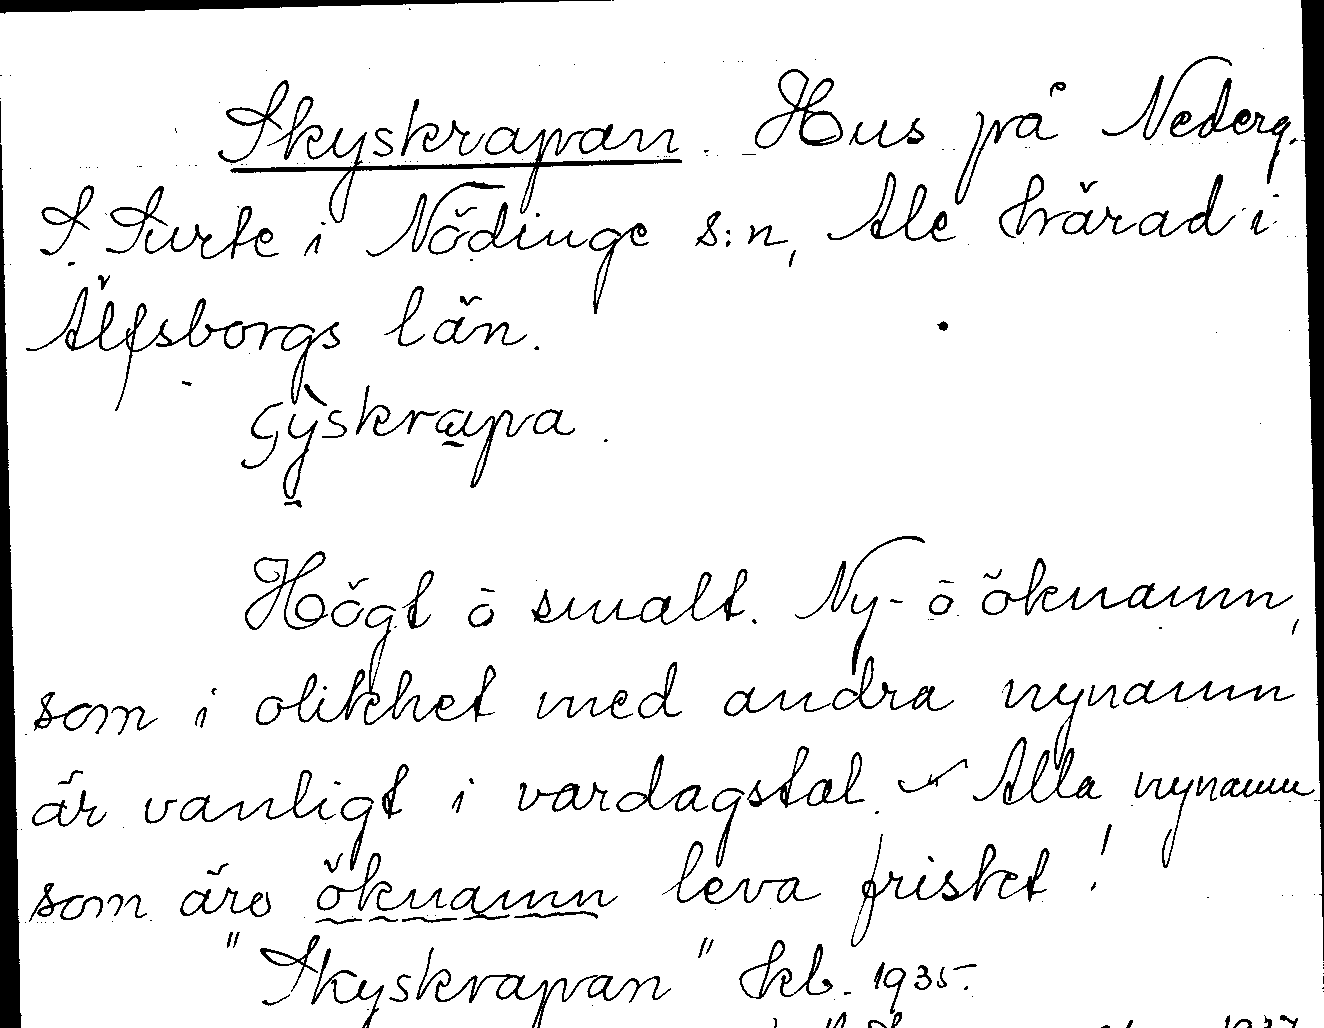 Skyskrapan. Hus på Nederg.
S. Surte i Nödinge s:n, Ale härad i
Älfsborgs län.
Çỳ̱skra̱pa.
Högt ō smalt. Ny- ō öknamn,
som i olikhet med andra nynamn
är vanligt i vardagstal. Alla nynamn
som äro öknamn leva friskt!
"Skyskrapan"
1935.
1937